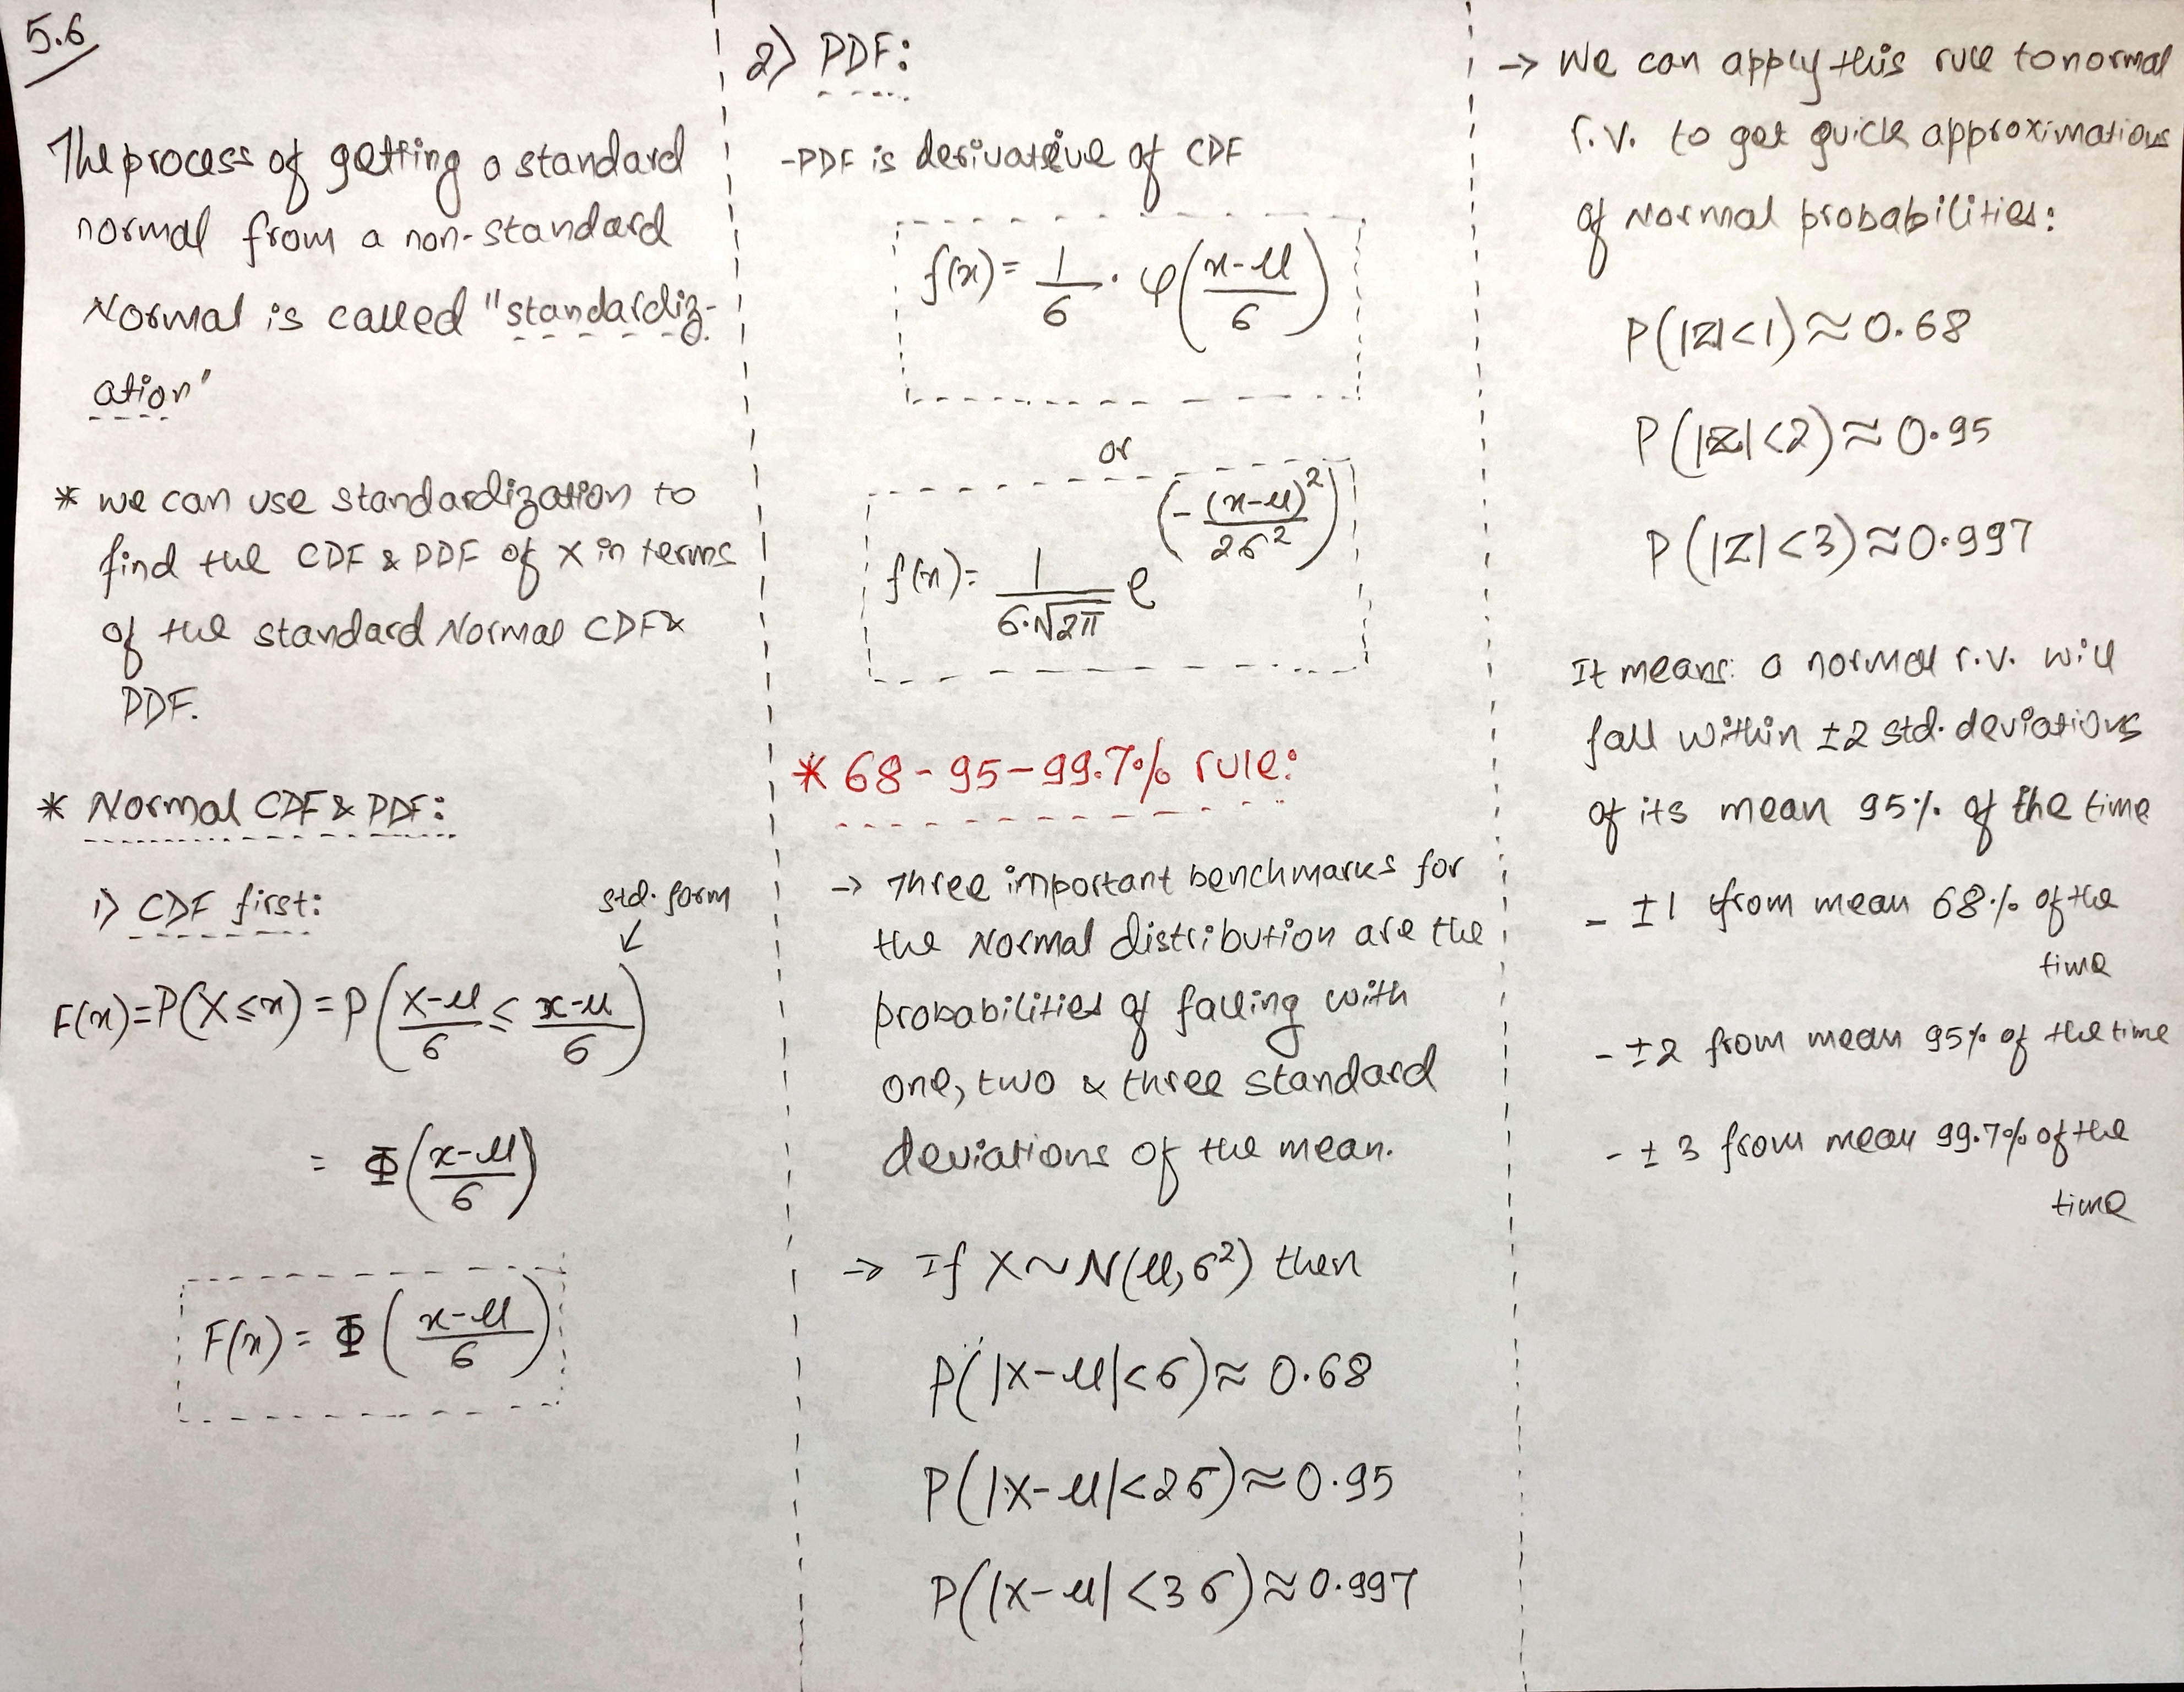 5.6
The process of getting a standard
normal from a non-standard
Normal is called "standardiz-
ation"
* we can use standardization to
find the CDF & PDF of X in terms
of the standard Normal CDF &
PDF.
* Normal CDF & PDF:
1) CDF first:
std. form
↓
F(x) = P(X ≤ x) = P((X-μ)/σ ≤ (x-μ)/σ)
= Φ((x-μ)/σ)
F(x) = Φ((x-μ)/σ)
2) PDF:
-PDF is derivative of CDF
f(x) = 1/σ · φ((x-μ)/σ)
or
f(x) = 1/(σ·√2π) e^(-(x-μ)²/2σ²)
* 68-95-99.7% rule:
→ Three important benchmarks for
the Normal distribution are the
probabilities of falling with
one, two & three standard
deviations of the mean.
→ If X ~ N(μ, σ²) then
P(|X-μ| < σ) ≈ 0.68
P(|X-μ| < 2σ) ≈ 0.95
P(|X-μ| < 3σ) ≈ 0.997
→ We can apply this rule to normal
r.v. to get quick approximations
of Normal probabilities:
P(|Z| < 1) ≈ 0.68
P(|Z| < 2) ≈ 0.95
P(|Z| < 3) ≈ 0.997
It means: a normal r.v. will
fall within ±2 std. deviations
of its mean 95% of the time
- ±1 from mean 68% of the
time
- ±2 from mean 95% of the time
- ±3 from mean 99.7% of the
time